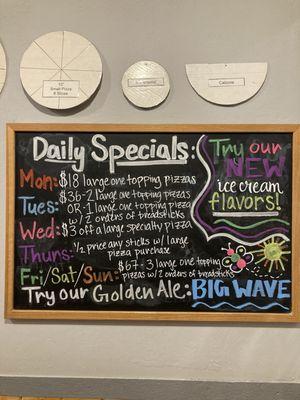 12"
Small Pizza
8 Slices
Calzone
Daily Specials:
Mon: $18 large one topping pizzas
Tues: $36-2 large one topping pizzas
OR-1 large one topping pizza
w/ 2 orders of breadsticks
Wed: $3 off a large specialty pizza
Thurs: 1/2 price any sticks w/ large
pizza purchase
Fri/Sat/Sun: $67-3 large one topping
pizzas w/ 2 orders of breadsticks
Try our Golden Ale: BIG WAVE
Try our
NEW
ice cream
flavors!